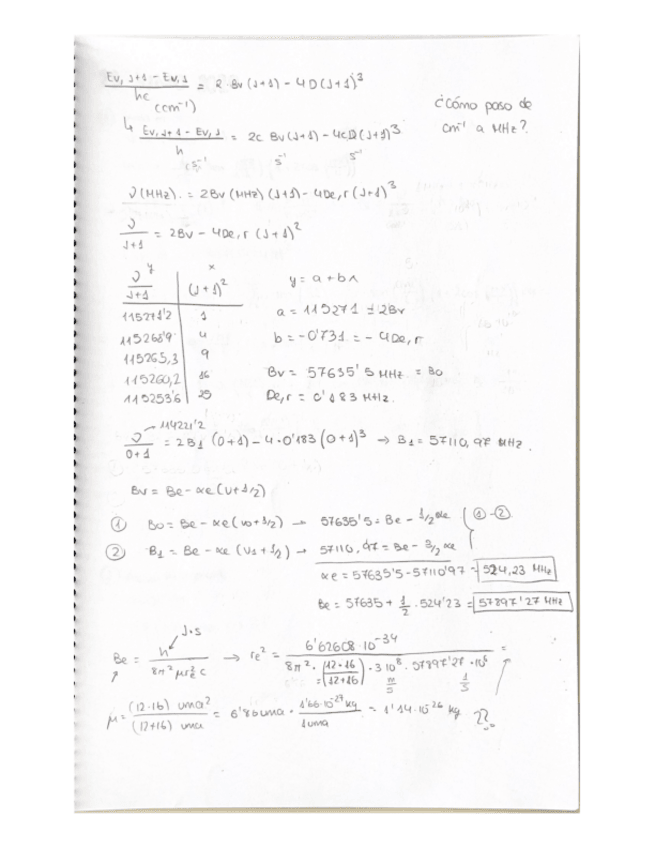 Ev, J+1 - Ev, J / hc = 2 Bv (J+1) - 4D (J+1)³
(cm⁻¹)
¿Cómo paso de cm⁻¹ a MHz?
↳ Ev, J+1 - Ev, J / h = 2c Bv (J+1) - 4cD (J+1)³
(s⁻¹) s⁻¹ s⁻¹
ν (MHz) = 2Bv (MHz) (J+1) - 4De,r (J+1)³
ν / J+1 = 2Bv - 4De,r (J+1)²
y x
ν / J+1 | (J+1)²
115271'2 | 1
115268'9 | 4
115265,3 | 9
115260,2 | 16
115253'6 | 25
y = a + bx
a = 115271 = 2Bv
b = -0'731 = - 4De,r
Bv = 57635'5 MHz = B0
De,r = 0'183 MHz.
ν → 114221'2
ν / 0+1 = 2B1 (0+1) - 4·0'183 (0+1)³ → B1 = 57110,97 MHz.
Bv = Be - αe (v+1/2)
① B0 = Be - αe (v0+1/2) → 57635'5 = Be - 1/2 αe
② B1 = Be - αe (v1+1/2) → 57110,97 = Be - 3/2 αe
①-②
αe = 57635'5 - 57110'97 = 524,23 MHz
Be = 57635 + 1/2 · 524'23 = 57897'27 MHz
J·s
Be = h / 8π² μ re² c → re² = 6'62608·10⁻³⁴ / 8π² · (12·16) / (12+16) · 3·10⁸ · 57897'27 · 10⁶ =
m/s 1/s
μ = (12·16) uma² / (12+16) uma = 6'86 uma · 1'66·10⁻²⁷ kg / 1 uma = 1'14·10⁻²⁶ kg ??